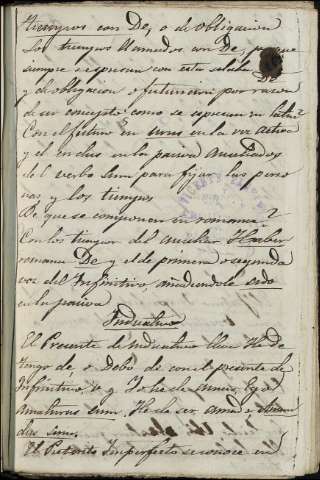 tiempos con De, o de obligacion
Los tiempos llamados con De, porque
siempre se expresan con esta silaba De
y de obligacion o futuricion por razon
de su concepto como se expresan en latin?
Con el futuro en urus en la voz activa
y el en dus en la pasiva auxiliados
del verbo sum para fijar las perso
nas y los tiempos
De que se componen en romance?
Con los tiempos del auxiliar Haber
romance De y el de primera o segunda
voz del Infinitivo, añadiendole sido
en la pasiva
Indicativo
El Presente de Indicativo lleva He De
Tengo de, o Debo de con el presente de
Infinitivo v g Yo he de amar Ego
Amaturus sum. He de ser amado Aman
dus sum.
El Preterito Imperfecto se conoce en